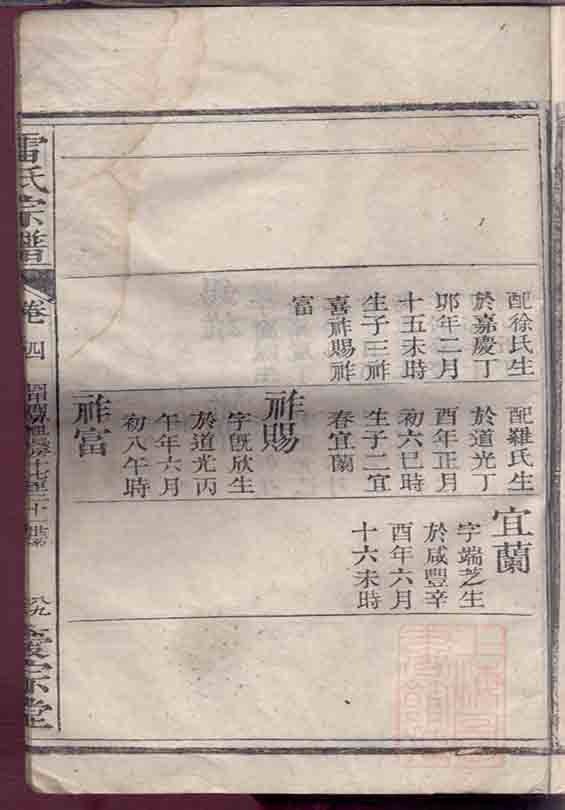 配徐氏生
於嘉慶丁
卯年二月
十五未時
生子三祚
喜祚賜祚
富
配羅氏生
於道光丁
酉年正月
初六巳時
生子二宜
春宜蘭
祚賜
字旣欣生
於道光丙
午年六月
初八午時
祚富
宜蘭
字端芝生
於咸豐辛
酉年六月
十六未時
雷氏宗譜
卷四
八九